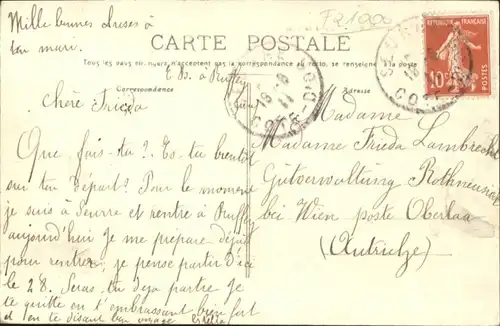 Mille bonnes choses à
ton mari.
CARTE POSTALE
Tous les pays étrangers n'acceptent pas la correspondance au recto, se renseigner à la poste
Correspondance
Adresse
RÉPUBLIQUE FRANÇAISE
10c
POSTES
Chère Frieda
Que fais-tu ? Es-tu bientôt
sur ton départ? Pour le moment
je suis à Seurre et rentre à Ruffey
aujourd'hui Je me prépare déjà
pour rentrer; je pense partir d'ici
le 28. Seras tu déjà partie Je
te quitte en t'embrassant bien fort
et en te disant bon voyage
Madame
Madame Frieda Lambrecht
Gutverwaltung Rothneusiedl
bei Wien poste Oberlaa
(Autriche)